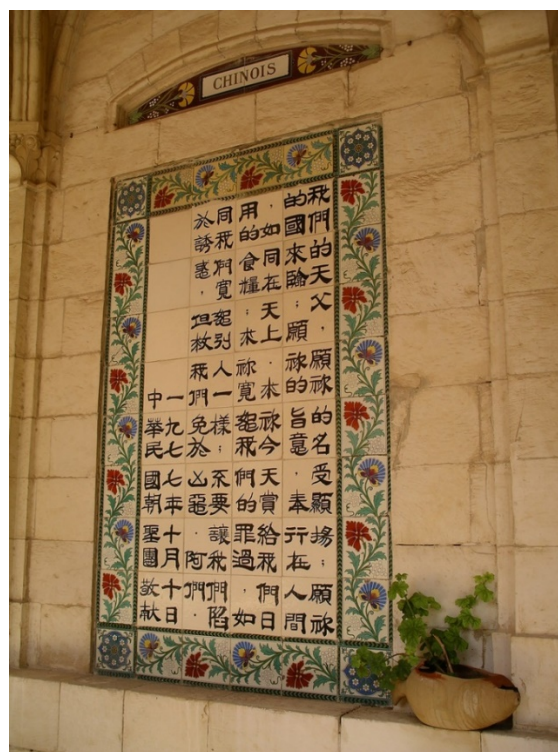 CHINOIS
我們的天父，願祢的名受顯揚；願祢
的國來臨；願祢的旨意，奉行在人間
，如同在天上。求祢今天賞給我們日
用的食糧；求祢寬恕我們的罪過，如
同我們寬恕別人一樣；不要讓我們陷
於誘惑，但救我們免於凶惡。阿們。
一九七七年十月十日
中華民國朝聖團敬献